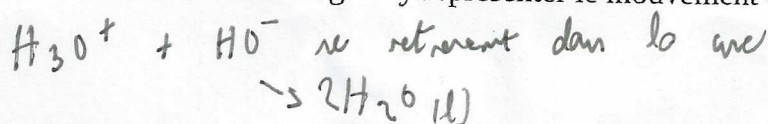 représenter le mouvement
H₃O⁺ + HO⁻ se retrouvent dans la cuve
→ 2H₂O (l)